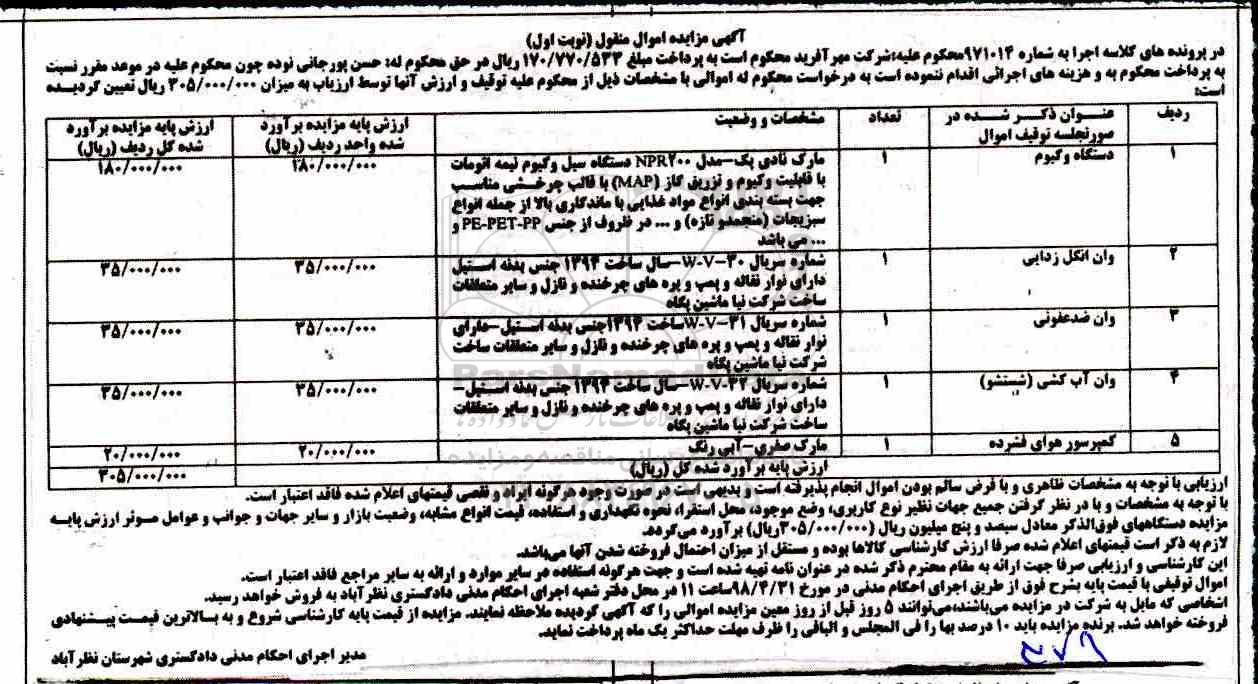 آگهی مزایده اموال منقول (نوبت اول)
در پرونده های کلاسه اجرا به شماره ۹۷۱۰۱۴محکوم علیه:شرکت مهر آفرید محکوم است به پرداخت مبلغ ۱۷۰/۷۷۰/۵۳۳ ریال در حق محکوم له: حسن پورجانی نوده چون محکوم علیه در موعد مقرر نسبت
به پرداخت محکوم به و هزینه های اجرائی اقدام ننموده است به درخواست محکوم له اموالی با مشخصات ذیل از محکوم علیه توقیف و ارزش آنها توسط ارزیاب به میزان ۳۰۵/۰۰۰/۰۰۰ ریال تعیین گردیده
است:
ردیف
عنوان ذکر شده در
صورتجلسه توقیف اموال
تعداد
مشخصات و وضعیت
ارزش پایه مزایده برآورد
شده واحد ردیف (ریال)
ارزش پایه مزایده برآورد
شده کل ردیف (ریال)
۱
دستگاه وکیوم
۱
مارک نادی پک-مدل NPR۲۰۰ دستگاه سیل وکیوم نیمه اتومات
با قابلیت وکیوم و تزریق گاز (MAP) با قالب چرخشی مناسب
جهت بسته بندی انواع مواد غذایی با ماندگاری بالا از جمله انواع
سبزیجات (منجمدو تازه) و ... در ظروف از جنس PE-PET-PP و
... می باشد
۱۸۰/۰۰۰/۰۰۰
۱۸۰/۰۰۰/۰۰۰
۲
وان انگل زدایی
۱
شماره سریال ۳۰-W-V-سال ساخت ۱۳۹۴ جنس بدنه استیل
دارای نوار نقاله و پمپ و پره های چرخنده و نازل و سایر متعلقات
ساخت شرکت نیا ماشین پگاه
۳۵/۰۰۰/۰۰۰
۳۵/۰۰۰/۰۰۰
۳
وان ضدعفونی
۱
شماره سریال ۳۱-W-Vساخت ۱۳۹۴جنس بدنه استیل-دارای
نوار نقاله و پمپ و پره های چرخنده و نازل و سایر متعلقات ساخت
شرکت نیا ماشین پگاه
۳۵/۰۰۰/۰۰۰
۳۵/۰۰۰/۰۰۰
۴
وان آب کشی (شستشو)
۱
شماره سریال ۳۲-W-V-سال ساخت ۱۳۹۴ جنس بدنه استیل-
دارای نوار نقاله و پمپ و پره های چرخنده و نازل و سایر متعلقات
ساخت شرکت نیا ماشین پگاه
۳۵/۰۰۰/۰۰۰
۳۵/۰۰۰/۰۰۰
۵
کمپرسور هوای فشرده
۱
مارک صفری-آبی رنگ
۲۰/۰۰۰/۰۰۰
۲۰/۰۰۰/۰۰۰
ارزش پایه برآورد شده کل (ریال)
۳۰۵/۰۰۰/۰۰۰
ارزیابی با توجه به مشخصات ظاهری و با فرض سالم بودن اموال انجام پذیرفته است و بدیهی است در صورت وجود هرگونه ایراد و نقصی قیمتهای اعلام شده فاقد اعتبار است.
با توجه به مشخصات و با در نظر گرفتن جمیع جهات نظیر نوع کاربری، وضع موجود، محل استقرا، نحوه نگهداری و استفاده، قیمت انواع مشابه، وضعیت بازار و سایر جهات و جوانب و عوامل موثر ارزش پایه
مزایده دستگاههای فوق‌الذکر معادل سیصد و پنج میلیون ریال (۳۰۵/۰۰۰/۰۰۰ریال) برآورد می‌گردد.
لازم به ذکر است قیمتهای اعلام شده صرفا ارزش کارشناسی کالاها بوده و مستقل از میزان احتمال فروخته شدن آنها می‌باشد.
این کارشناسی و ارزیابی صرفا جهت ارائه به مقام محترم ذکر شده در عنوان نامه تهیه شده است و جهت هرگونه استفاده در سایر موارد و ارائه به سایر مراجع فاقد اعتبار است.
اموال توقیفی با قیمت پایه بشرح فوق از طریق اجرای احکام مدنی در مورخ ۹۸/۴/۳۱ساعت ۱۱ در محل دفتر شعبه اجرای احکام مدنی دادگستری نظرآباد به فروش خواهد رسید.
اشخاصی که مایل به شرکت در مزایده می‌باشند،می‌توانند ۵ روز قبل از روز معین مزایده اموالی را که آگهی گردیده ملاحظه نمایند. مزایده از قیمت پایه کارشناسی شروع و به بالاترین قیمت پیشنهادی
فروخته خواهد شد. برنده مزایده باید ۱۰ درصد بها را فی المجلس و الباقی را ظرف مهلت حداکثر یک ماه پرداخت نماید.
مدیر اجرای احکام مدنی دادگستری شهرستان نظرآباد
ParsNamad